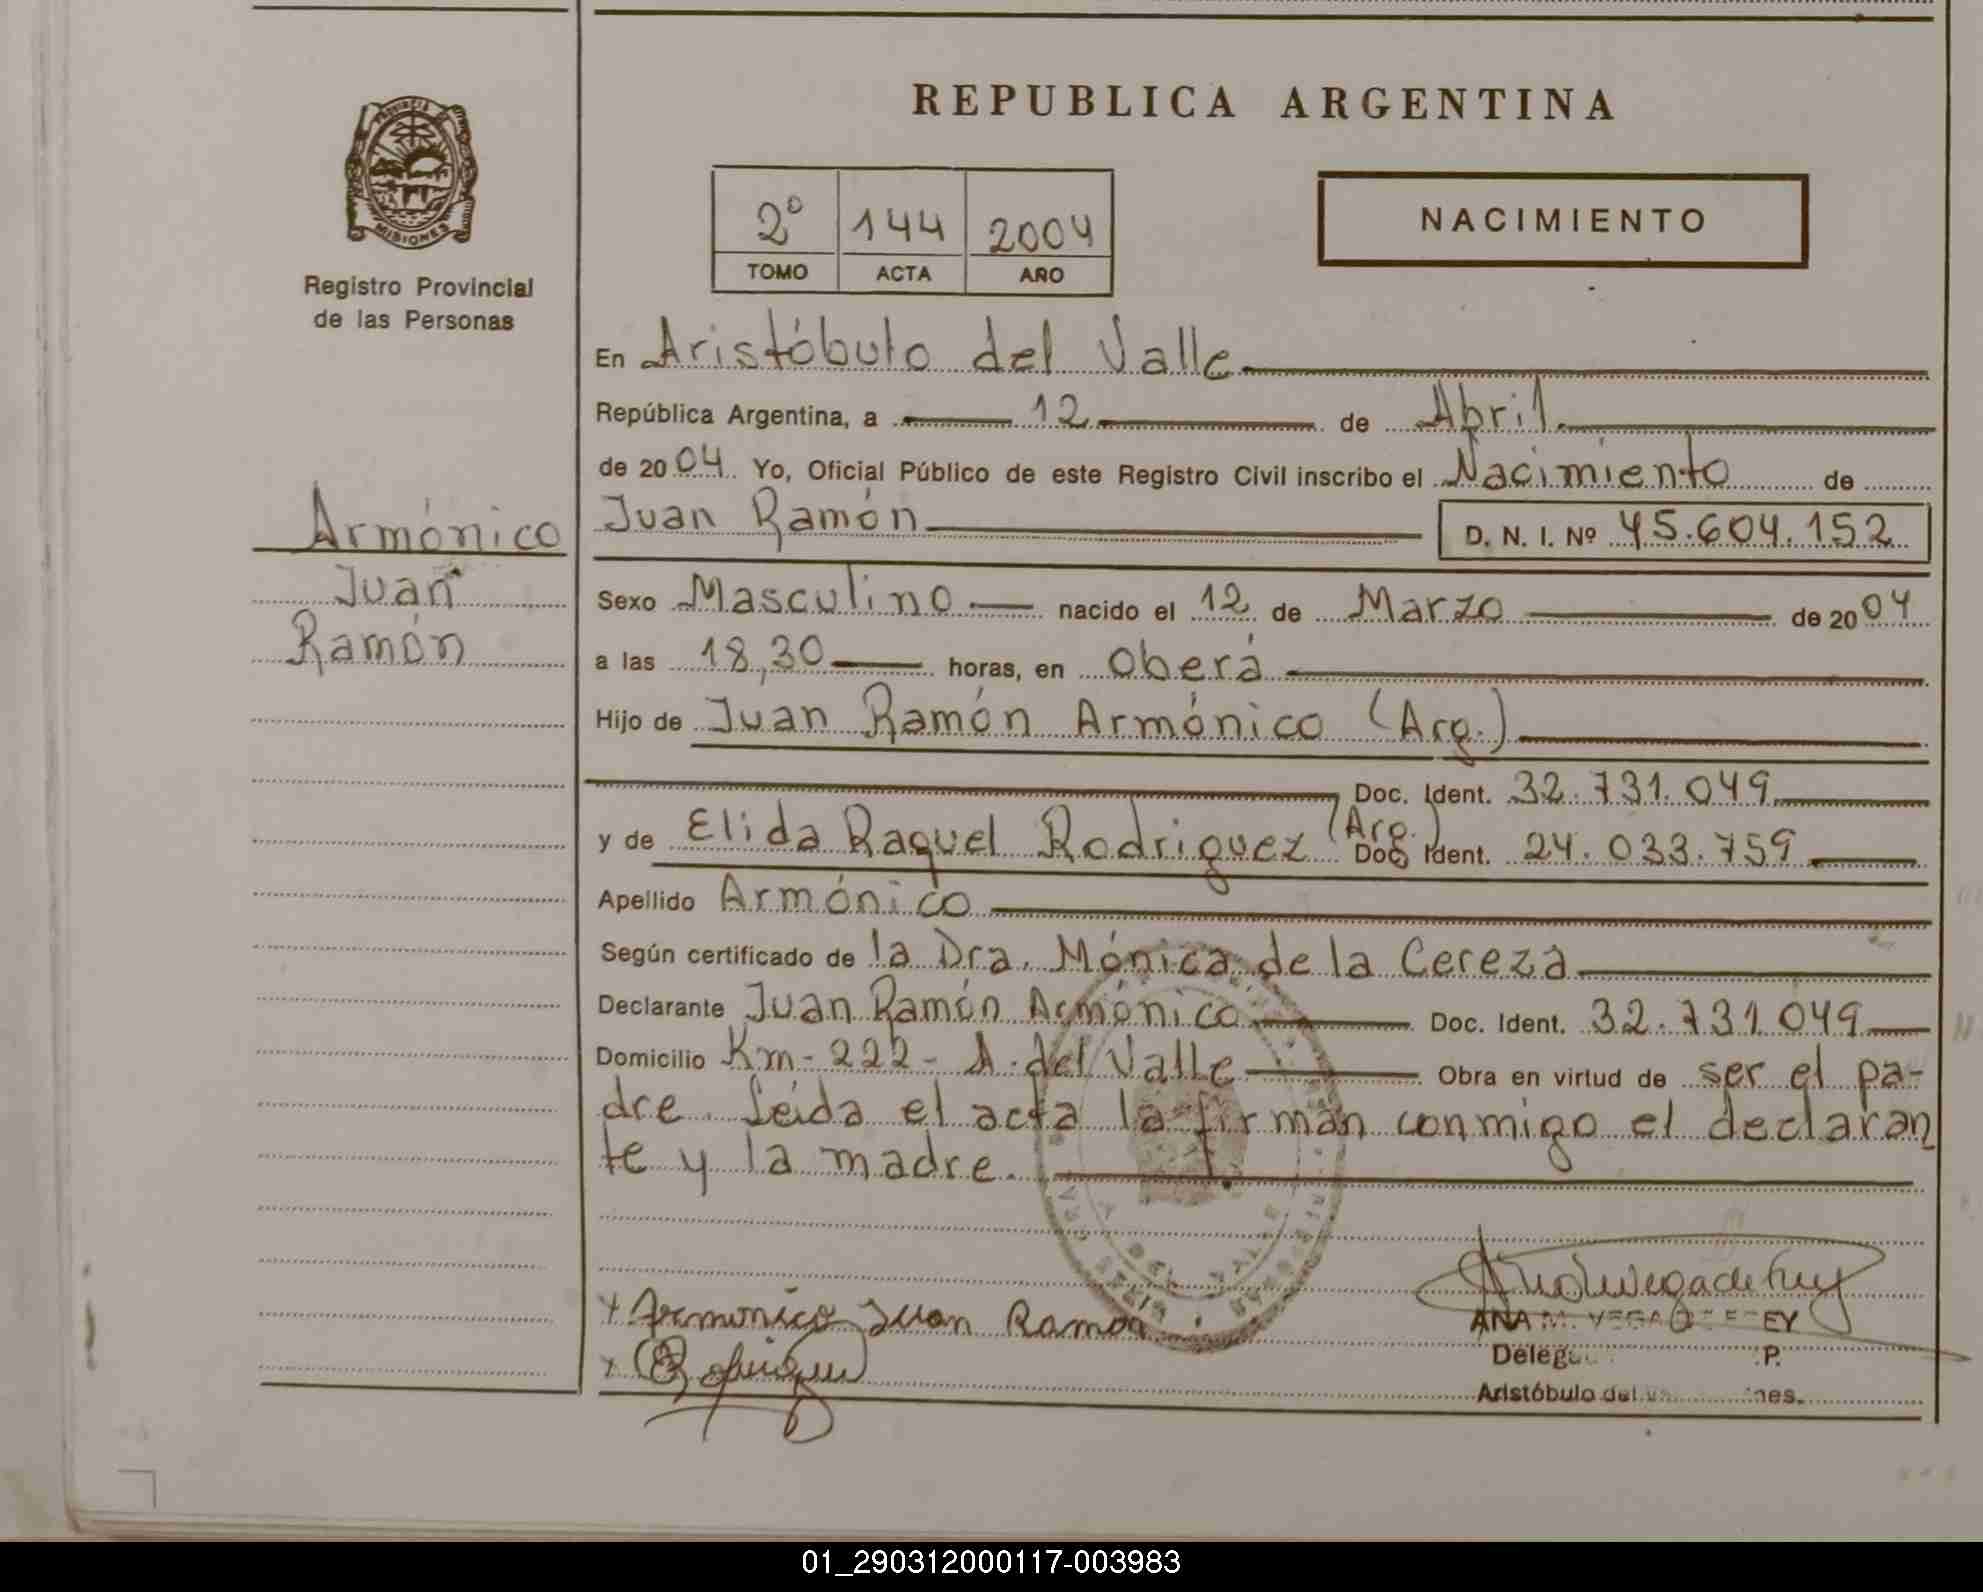 REPUBLICA ARGENTINA
PROVINCIA
MISIONES
Registro Provincial
de las Personas
2º 144 2004
TOMO ACTA AÑO
NACIMIENTO
En Aristóbulo del Valle
República Argentina, a 12 de Abril
de 2004 Yo, Oficial Público de este Registro Civil inscribo el Nacimiento de
Armónico
Juan
Ramón
Juan Ramón D. N. I. Nº 45.604.152
Sexo Masculino nacido el 12 de Marzo de 2004
a las 18,30 horas, en Oberá
Hijo de Juan Ramón Armónico (Arg.)
Doc. Ident. 32.731.049
y de Elida Raquel Rodriguez (Arg.) Doc. Ident. 24.033.759
Apellido Armónico
Según certificado de la Dra. Mónica de la Cereza
Declarante Juan Ramón Armónico Doc. Ident. 32.731.049
Domicilio Km-222- A. del Valle Obra en virtud de ser el pa-
dre. Leída el acta la firman conmigo el declaran
te y la madre.
x Armonico Juan Ramon
ANA M. VEGA
P.
Aristóbulo del
01_290312000117-003983